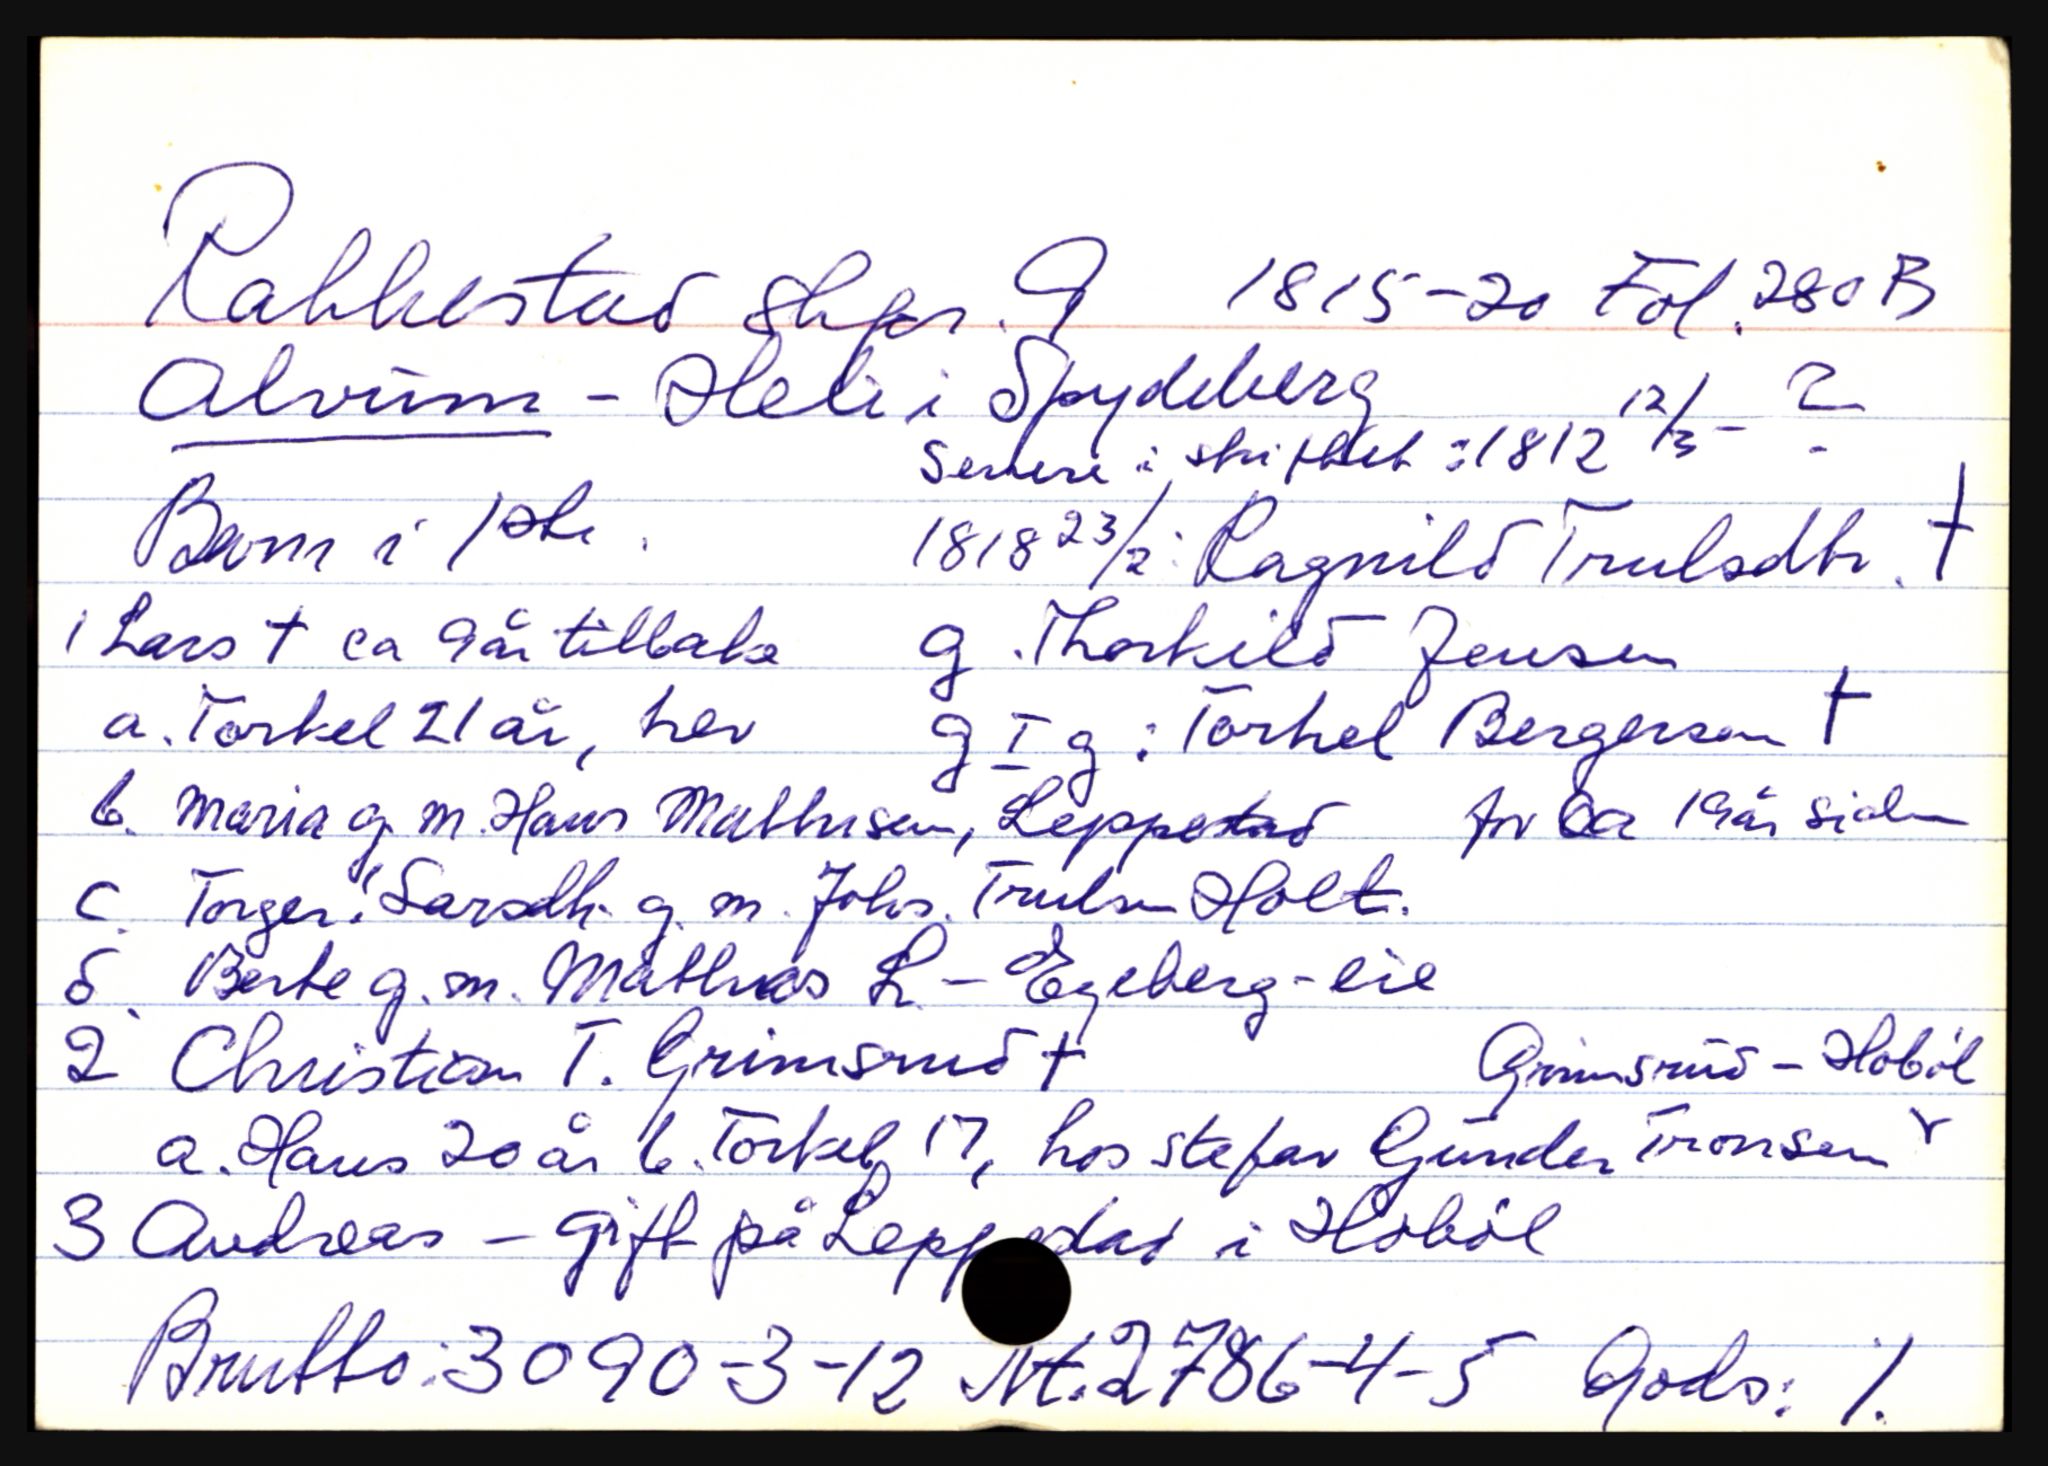 Rakkestad skpr. 9 1815-20 Fol. 280 B
Alvum - Heli i Spydeberg
Senere i skiftet : 1812 12/3 - ?
Barn i 1ste. 1818 23/2: Ragnild Trulsdtr. †
1 Lars † ca 9 år tilbake g. Thorkild Jensen
a. Torkel 21 år, her g I g : Torkel Bergersen †
b. Maria g. m. Hans Mathisen, Leppestad for ca 19 år siden
c. Torger! Larsdtr. g. m. Johs. Trulsen Holt.
d. Berte g. m. Mathias L. - Egeberg-eie
2 Christian T. Grimsrud † Grimsrud - Hobøl
a. Hans 20 år b. Torkel 17, hos stefar Gunder Tronsen
3 Andreas - gift på Leppestad i Hobøl
Brutto: 3090-3-12 Nt. 2786-4-5 Gods: %.